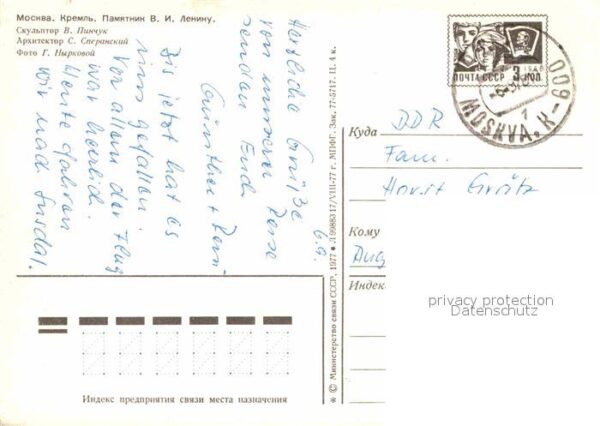 Москва. Кремль. Памятник В. И. Ленину.
Скульптор В. Пинчук
Архитектор С. Сперанский
Фото Г. Нырковой
6.9.
Herzliche Grüße
von unserer Reise
senden Euch
Günther +
Bis jetzt hat es
uns gefallen.
Vor allem der Flug
war herrlich.
Heute fahren
wir nach Susdal.
* © Министерство связи СССР, 1977 * Л9988317/VIII-77 г. МПФГ. Зак. 77-571 г. II. 4 к.
ПОЧТА СССР 3 КОП.
1966
MOSKVA. K-600
1
Куда DDR
Fam.
Horst Grätz
Кому
Aug
Индекс
privacy protection
Datenschutz
Индекс предприятия связи места назначения